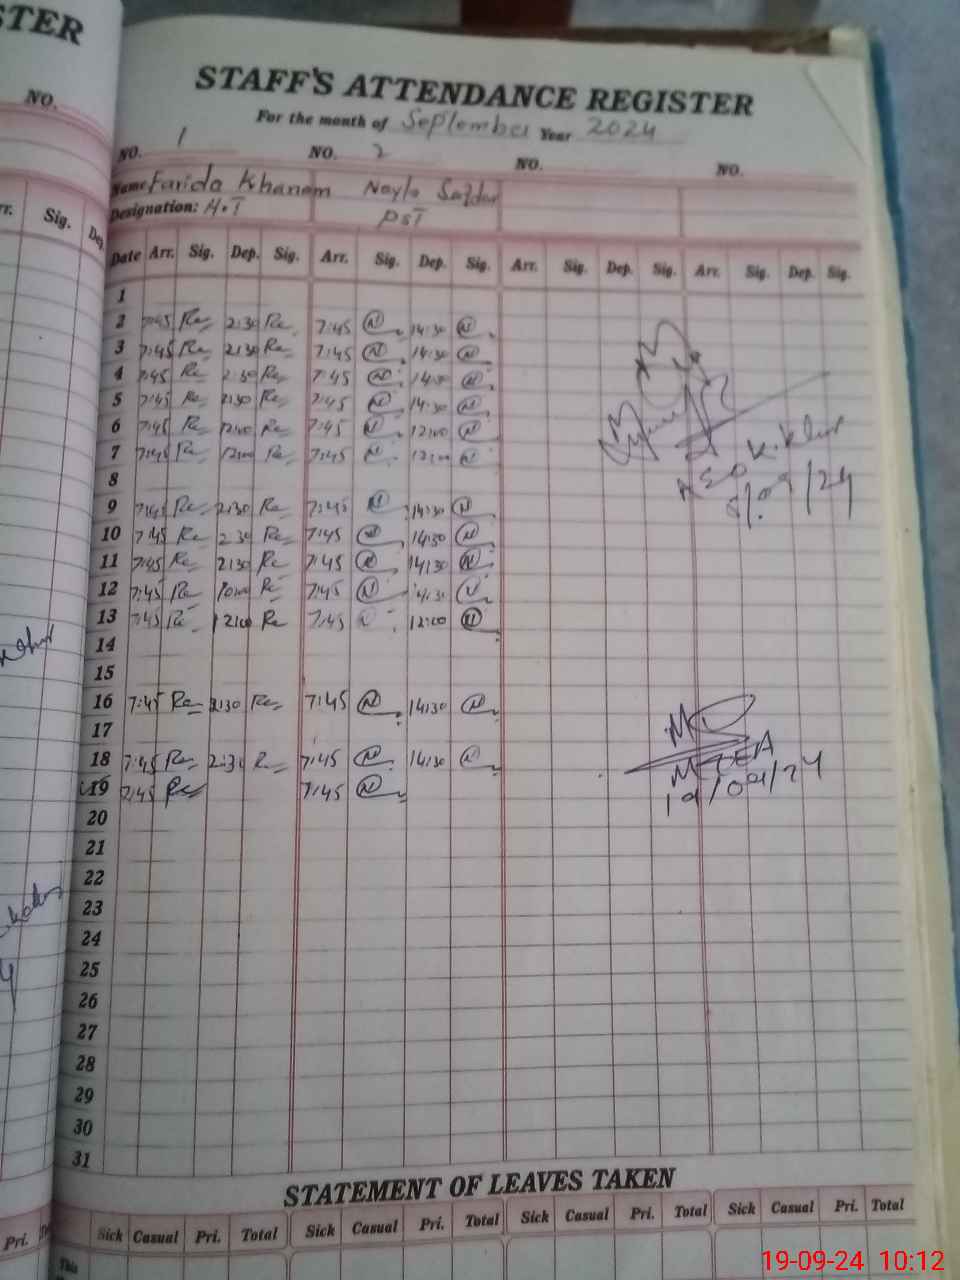 STER
STAFF'S ATTENDANCE REGISTER
NO.
For the month of September Year 2024
NO. 1 NO. 2 NO. NO.
Name Farida Khanam Nayla Safdar
Designation: H.T PST
rr. Sig. Dep.
Date Arr. Sig. Dep. Sig. Arr. Sig. Dep. Sig. Arr. Sig. Dep. Sig. Arr. Sig. Dep. Sig.
1
2 7:45 2:30 7:45 N 14:30 N
3 7:45 2:30 7:45 N 14:30 N
4 7:45 2:30 7:45 N 14:30 N
5 7:45 2:30 7:45 N 14:30 N
6 7:45 12:00 7:45 N 12:00 N
7 7:45 12:00 7:45 N 12:00 N
8
9 7:45 2:30 7:45 N 14:30 N
10 7:45 2 30 7:45 N 14:30 N
11 7:45 2:30 7:45 N 14:30 N
12 7:45 7:45 N 14:30 N
13 7:45 12:00 7:45 N 12:00 N
14
15
16 7:45 2:30 7:45 N 14:30 N
17
18 7:45 2:30 7:45 N 14:30 N
19 7:45 7:45 N
19/09/24
20
21
22
23
24
25
26
27
28
29
30
31
STATEMENT OF LEAVES TAKEN
Pri. Sick Casual Pri. Total Sick Casual Pri. Total Sick Casual Pri. Total Sick Casual Pri. Total
This
19-09-24 10:12